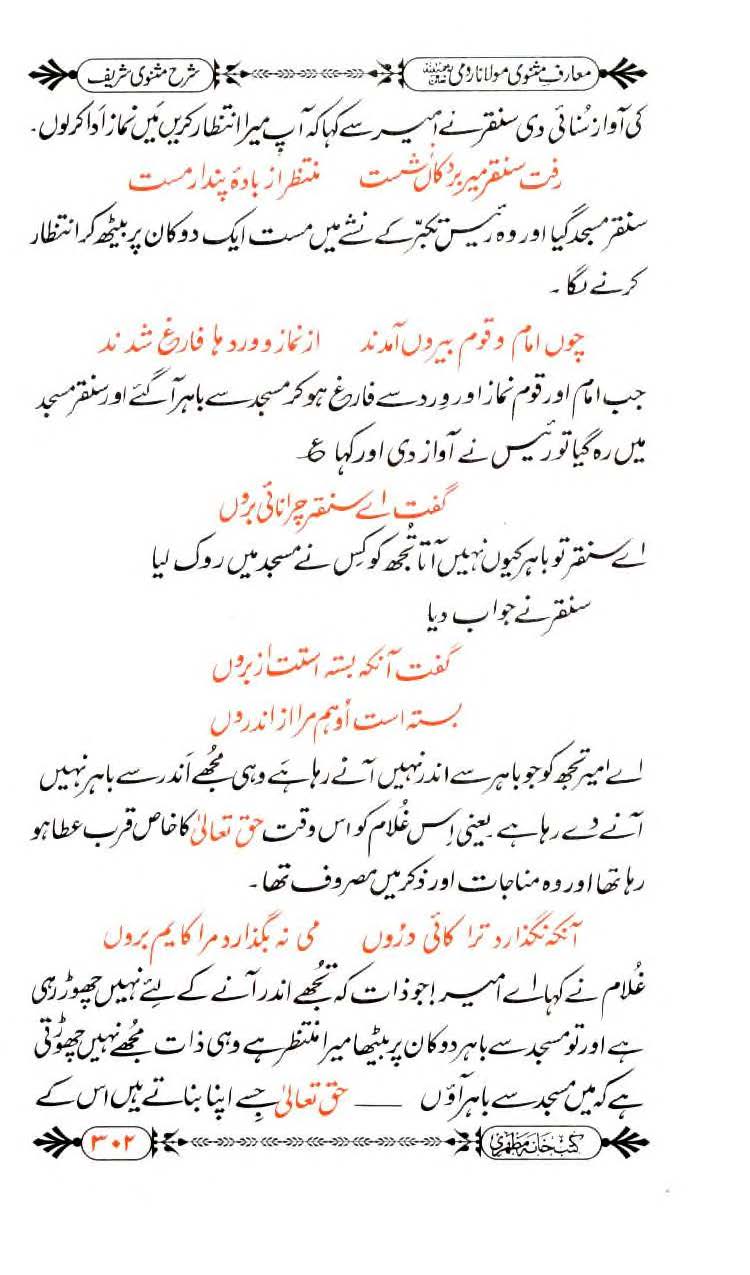 معارفِ مثنوی مولانا رومی شرح مثنوی شریف
کی آواز سُنائی دی سنقر نے امیر سے کہا کہ آپ میرا انتظار کریں مَیں نماز اَدا کرلوں۔
رفت سنقر میر بردکاں نشست منتظر از بادۂ پندار مست
سنقر مسجد گیا اور وہ رئیس تکبّر کے نشے میں مست ایک دوکان پر بیٹھ کر انتظار
کرنے لگا ۔
چوں امام و قوم بیروں آمدند از نماز و ورد ہا فارغ شدند
جب امام اور قوم نماز اور وِرد سے فارغ ہوکر مسجد سے باہر آگئے اور سنقر مسجد
میں رہ گیا تو رئیس نے آواز دی اور کہا ؏
گفت اے سنقر چرا نائی بروں
اے سنقر تو باہر کیوں نہیں آتا تُجھ کو کِس نے مسجد میں روک لیا
سنقر نے جواب دیا
گفت آنکہ بستہ استت از بروں
بستہ است اُو ہم مرا از اندروں
اے امیر تجھ کو جو باہر سے اندر نہیں آنے دے رہا ہَے وہی مُجھے اَندر سے باہر نہیں
آنے دے رہا ہے یعنی اِس غُلام کو اس وقت حق تعالیٰ کا خاص قرب عطا ہو
رہا تھا اور وہ مناجات اور ذکر میں مصروف تھا۔
آنکہ نگذارد ترا کائی دروں می نہ بگذارد مرا کایم بروں
غُلام نے کہا اے امیر! جو ذات کہ تُجھے اندر آنے کے لئے نہیں چھوڑ رہی
ہے اور تو مسجد سے باہر دوکان پر بیٹھا میرا منتظر ہے وہی ذات مُجھے نہیں چھوڑتی
ہے کہ میں مسجد سے باہر آؤں ــــ حق تعالیٰ جسے اپنا بناتے ہیں اس کے
کتب خانہ مظہری ۳۰۲